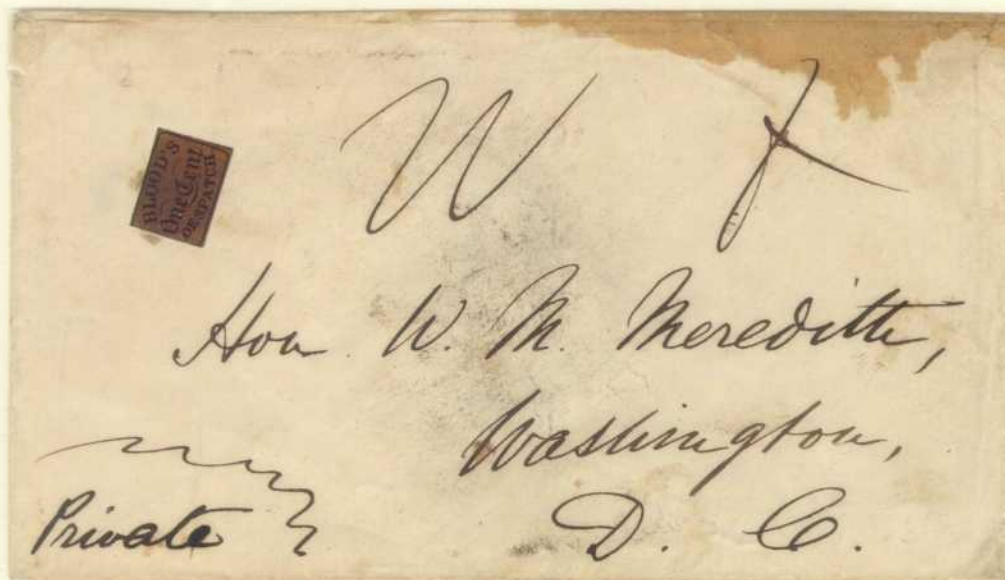 W
BLOOD'S
One Cent
DESPATCH
Hon. W. M. Meredith,
Washington,
D. C.
Private